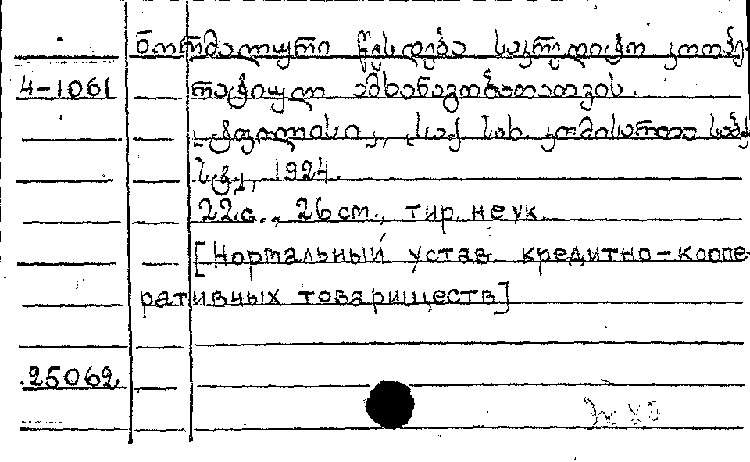 ნორმალური წესდება საკრედიტო კოოპე-
4-1061 რატიულ ამხანაგობათათვის.
ტფილისი, საქ. სახ. კომისართა საბჭ.
ს.გ., 1924.
22.с., 26 см., тир. неук.
[Нормальный устав кредитно-коопе-
ративных товариществ]
25062